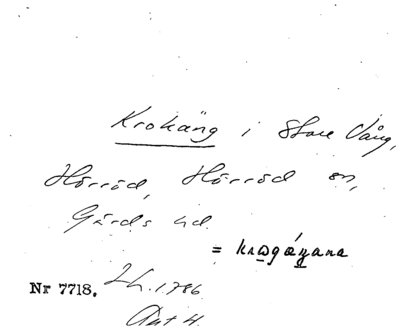 Krokäng i Store Vång,
Hörröd, Hörröd sn,
Gärds hd.
= krωgæŋana
Nr 7718. Lh. 1786
Akt 4.